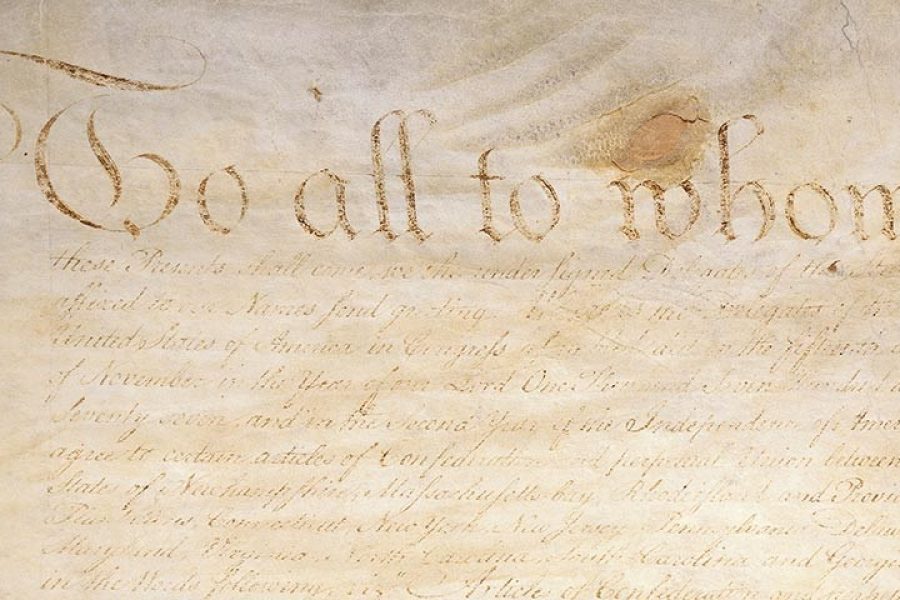 To all to whom
these Presents shall come, we the under signed Delegates of the Sta
affixed to our Names send greeting. Whereas the Delegates of the
United States of America in Congress assembled did on the fifteenth d
of November in the Year of our Lord One Thousand Seven Hundred a
Seventy seven, and in the Second Year of the Independence of Amer
agree to certain articles of Confederation and perpetual Union between
States of Newhampshire, Massachusetts-bay, Rhodeisland and Provid
Plantations, Connecticut, New York, New Jersey, Pennsylvania, Delaw
Maryland, Virginia, North Carolina, South Carolina and Georg
in the Words following, viz. Articles of Confederation and perpet